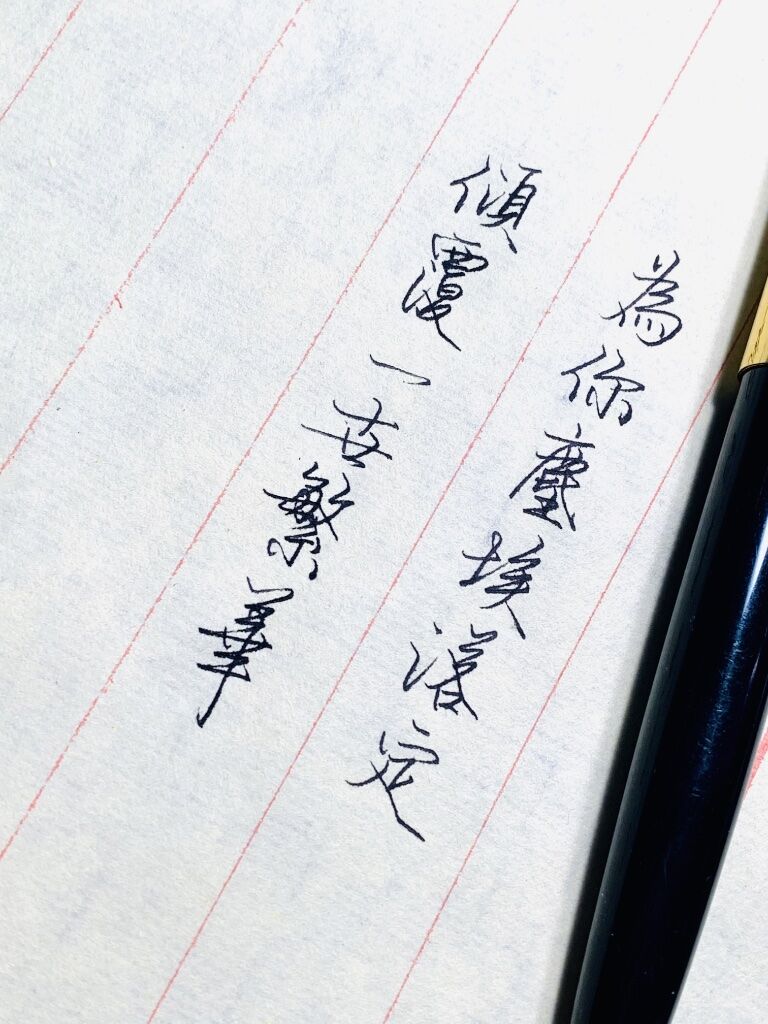 為你塵埃落定
傾覆一世繁華